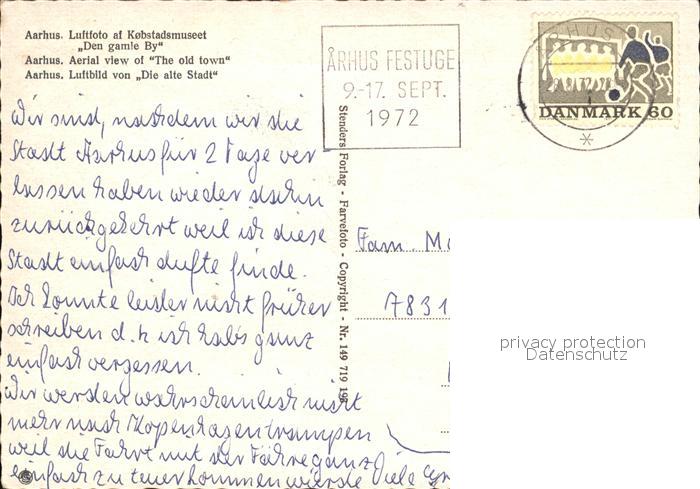 Aarhus. Luftfoto af Købstadsmuseet
„Den gamle By“
Aarhus. Aerial view of “The old town“
Aarhus. Luftbild von „Die alte Stadt“
ÅRHUS FESTUGE
9.-17. SEPT.
1972
ÅRHUS
DANMARK 60
Stenders Forlag - Farvefoto - Copyright - Nr. 149 719 198
Wir sind, nachdem wir die
Stadt Aarhus für 2 Tage ver-
lassen haben wieder dorthin
zurückgekehrt weil ich diese
Stadt einfach dufte finde.
Ich konnte leider nicht früher
schreiben d.h ich hab's ganz
einfach vergessen.
Wir werden wahrscheinlich nicht
mehr nach Kopenhagen trampen
weil die Fahrt mit der Fähre ganz
einfach zu teuer kommen würde Viele Gr
Fam. Mo
7831
privacy protection
Datenschutz